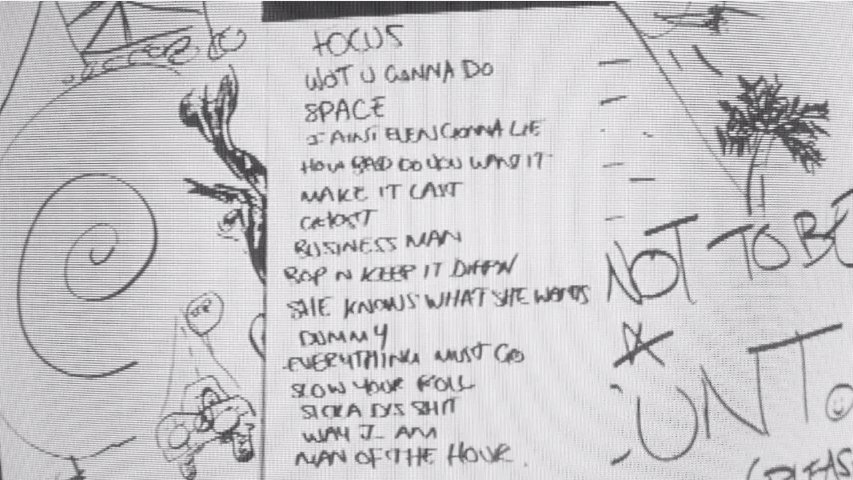 FOCUS
WOT U GANNA DO
SPACE
I AIN'T EVEN GONNA LIE
HOW BAD DO YOU WANT IT
MAKE IT LAST
GHOST
BUSINESS MAN
BOP N KEEP IT DIPPIN
SHE KNOWS WHAT SHE WANTS
DUMMY
EVERYTHING MUST GO
SLOW YOUR ROLL
SICKA DIS SHIT
WAY I AM
MAN OF THE HOUR
NOT TO BE
A
CUNT.
(PLEAS